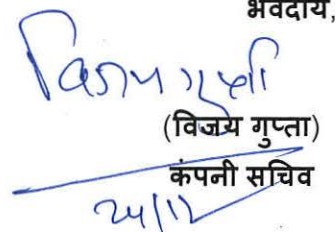 भवदीय,
विजय गुप्ता
(विजय गुप्ता)
कंपनी सचिव
24/12